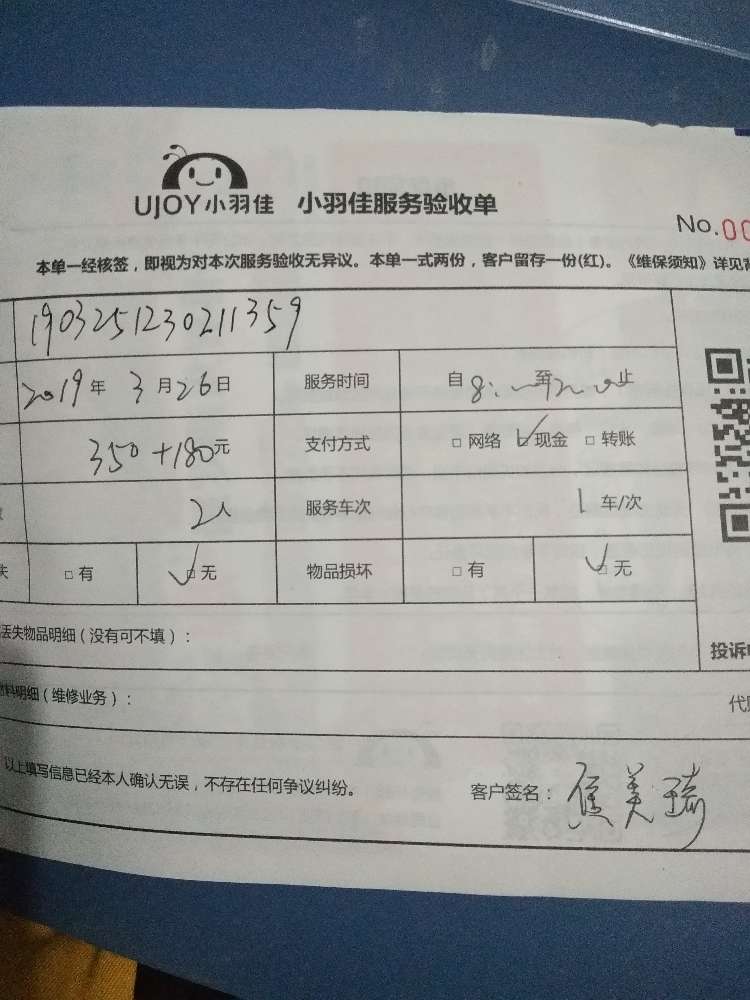 UJOY小羽佳 小羽佳服务验收单
No.00
本单一经核签，即视为对本次服务验收无异议。本单一式两份，客户留存一份(红)。《维保须知》详见背
1903251230211359
2019年 3月26日 服务时间 自 8: 至 止
350+180元 支付方式 □ 网络 ☑ 现金 □ 转账
2人 服务车次 1 车/次
失 □ 有 ☑ 无 物品损坏 □ 有 ☑ 无
丢失物品明细（没有可不填）：
投诉
材料明细（维修业务）：
以上填写信息已经本人确认无误，不存在任何争议纠纷。
客户签名：
美